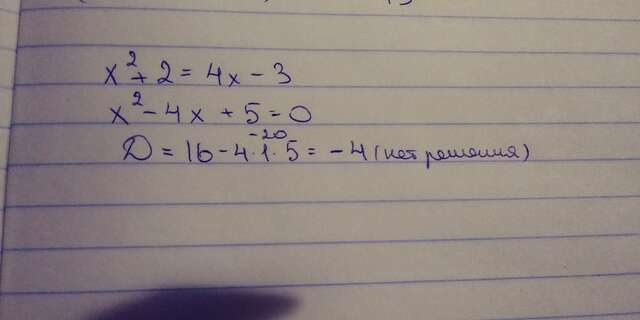 x² + 2 = 4x - 3
x² - 4x + 5 = 0
-20
D = 16 - 4·1·5 = -4 (нет решения)